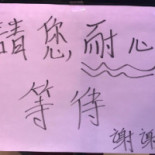 請您耐心
等待
謝謝